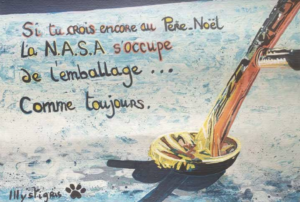 Si tu crois encore au Père-Noël
La N.A.S.A s'occupe
de l'emballage ...
Comme toujours.
Mystigris